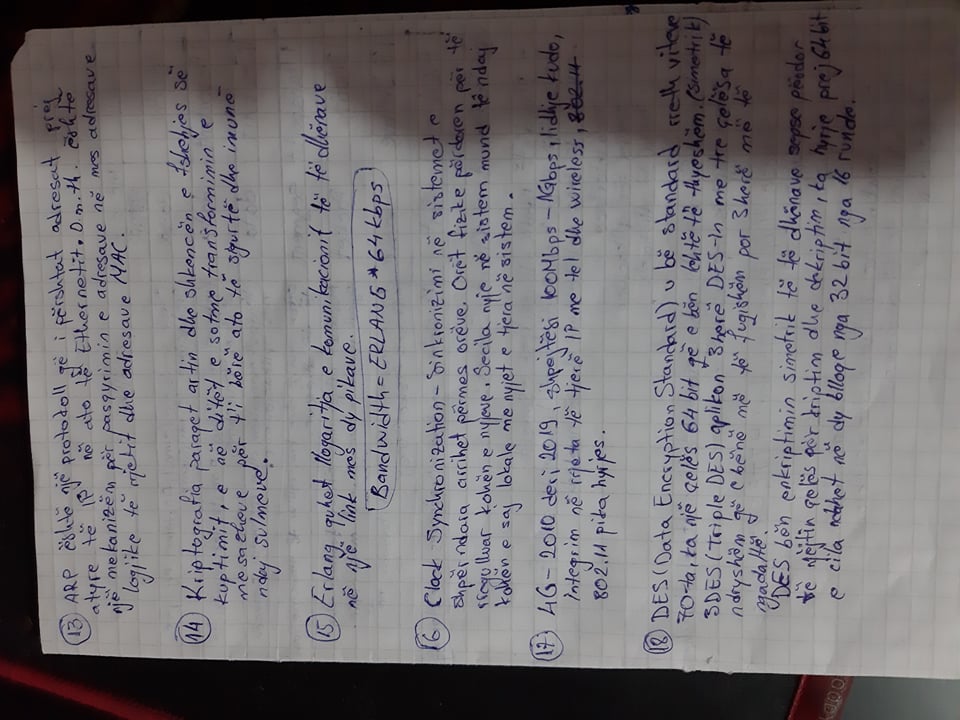 13 ARP është një protokoll që i përshtat adresat prej
atyre të IP në ato të Ethernetit. D.m.th. është
një mekanizëm për pasqyrimin e adresave në mes adresave
logjike të rrjetit dhe adresave MAC.
14 Kriptografia paraqet artin dhe shkencën e fshehjes së
kuptimit, e në ditët e sotme transformimin e
mesazheve për t'i bërë ato të sigurtë dhe imunë
ndaj sulmeve.
15 Erlang quhet llogaritja e komunikacionit të të dhënave
në një link mes dy pikave.
Bandwidth = ERLANG * 64 kbps
16 Clock Synchronization - Sinkronizimi në sistemet e
shpërndara arrihet përmes orëve. Orët fizike përdoren për të
rregulluar kohën e nyjeve. Secila nyje në sistem mund të ndaj
kohën e saj lokale me nyjet e tjera në sistem.
17 4G - 2010 deri 2019, shpejtësi 100Mbps - 1Gbps, lidhje kudo,
integrim në rrjeta të tjerë IP me tel dhe wireless, 802.11
802.11 pika hyrjes.
18 DES (Data Encryption Standard) u bë standard rreth viteve
70-ta, ka një çelës 64 bit që e bën lehtë të thyeshëm. (simetrik)
3DES (Triple DES) aplikon 3 herë DES-in me tre çelësa të
ndryshëm që e bënë më të fuqishëm por 3 herë më të
ngadaltë.
DES bën enkriptimin simetrik të të dhënave sepse përdor
të njëjtin çelës për kriptim dhe dekriptim, ka hyrje prej 64 bit
e cila ndahet në dy blloqe nga 32 bit nga 16 runde.